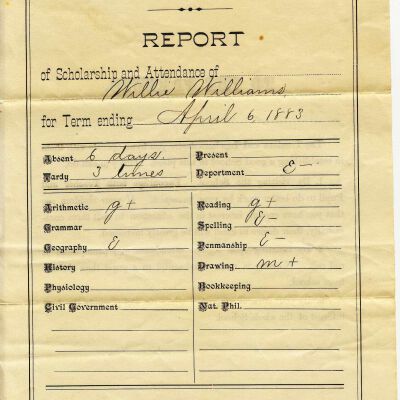 REPORT
of Scholarship and Attendance of
Willie Williams
for Term ending April 6, 1883
Absent 6 days. Present
Tardy 3 times Deportment E-
Arithmetic g+ Reading g+
Grammar Spelling E-
Geography E Penmanship E-
History Drawing m+
Physiology Bookkeeping
Civil Government Nat. Phil.